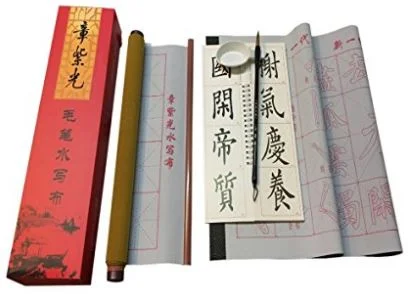 章紫光
毛笔水写布
章紫光水写布
謝氣慶養
國閑帝質
一代
新一